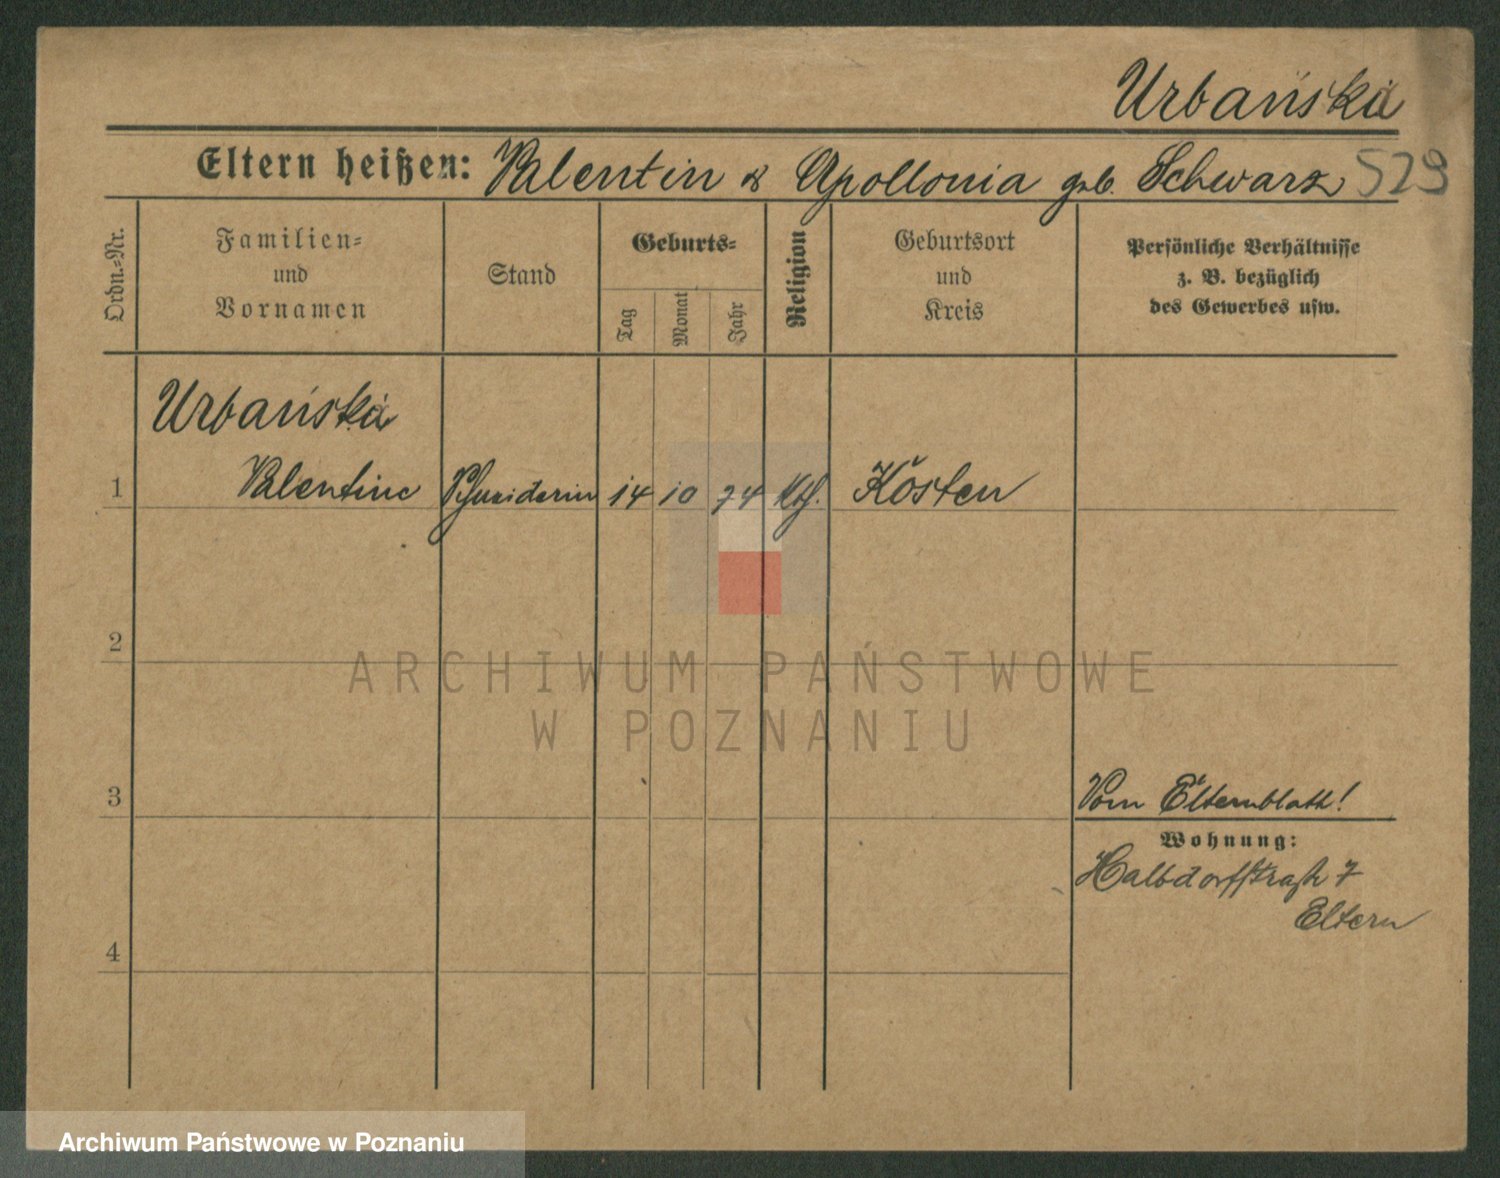 Urbańska
Eltern heißen: Valentin & Apollonia geb. Schwarz 529
Ordn.-Nr.
Familien-
und
Vornamen
Stand
Geburts-
Tag
Monat
Jahr
Religion
Geburtsort
und
Kreis
Persönliche Verhältnisse
z. B. bezüglich
des Gewerbes usw.
Urbańska
1 Valentine Schneiderin 14 10 74 kth. Kosten
2
3
Vom Elternblatt!
Wohnung:
Halbdorfstraße 7
Eltern
4
ARCHIWUM PAŃSTWOWE
W POZNANIU
Archiwum Państwowe w Poznaniu